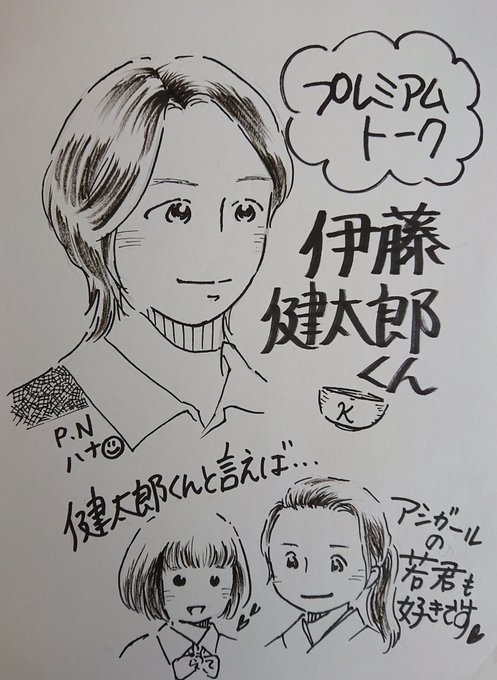 プレミアム
トーク
伊藤
健太郎
くん
K
P.N
ハナ
健太郎くんと言えば…
アシガール
の
若君も
好きです